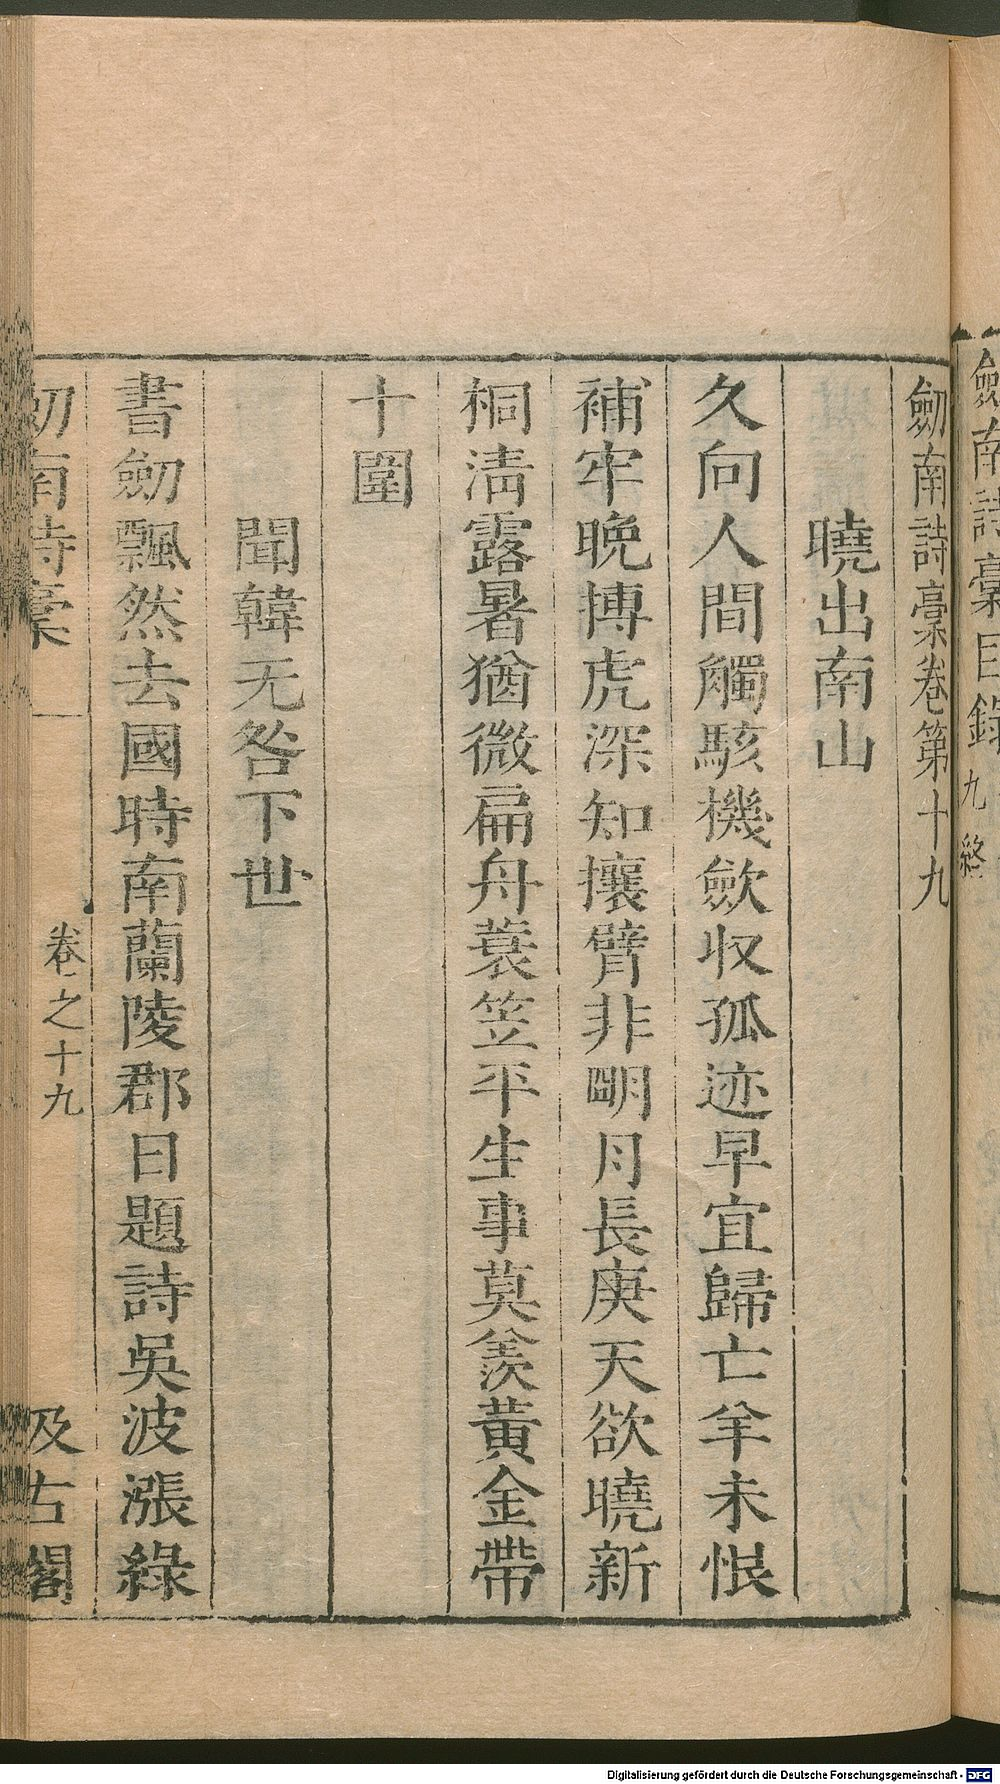 劒南詩稾目錄 九 終
劒南詩稾卷第十九
曉出南山
久向人間觸駭機歛収孤迹早宜歸亡羊未恨
補牢晚搏虎深知攘臂非明月長庚天欲曉新
桐淸露暑猶微扁舟蓑笠平生事莫羨黃金帶
十圍
聞韓无咎下世
書劒飄然去國時南蘭陵郡日題詩吳波漲綠
劒南詩稾 一 卷之十九 汲古閣
Digitalisierung gefördert durch die Deutsche Forschungsgemeinschaft - DFG